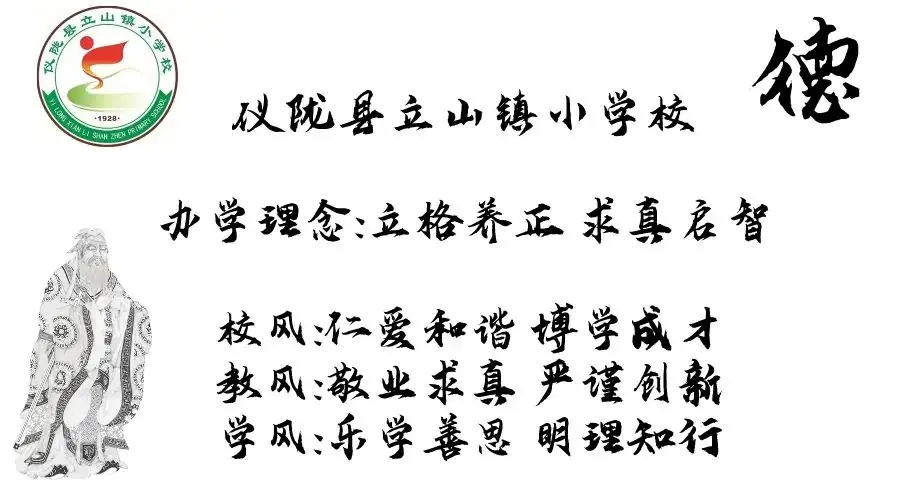 仪陇县立山镇小学校
·1928·
YI LONG XIAN LI SHAN ZHEN PRIMARY SCHOOL
德
仪陇县立山镇小学校
办学理念:立格养正 求真启智
校风:仁爱和谐 博学成才
教风:敬业求真 严谨创新
学风:乐学善思 明理知行